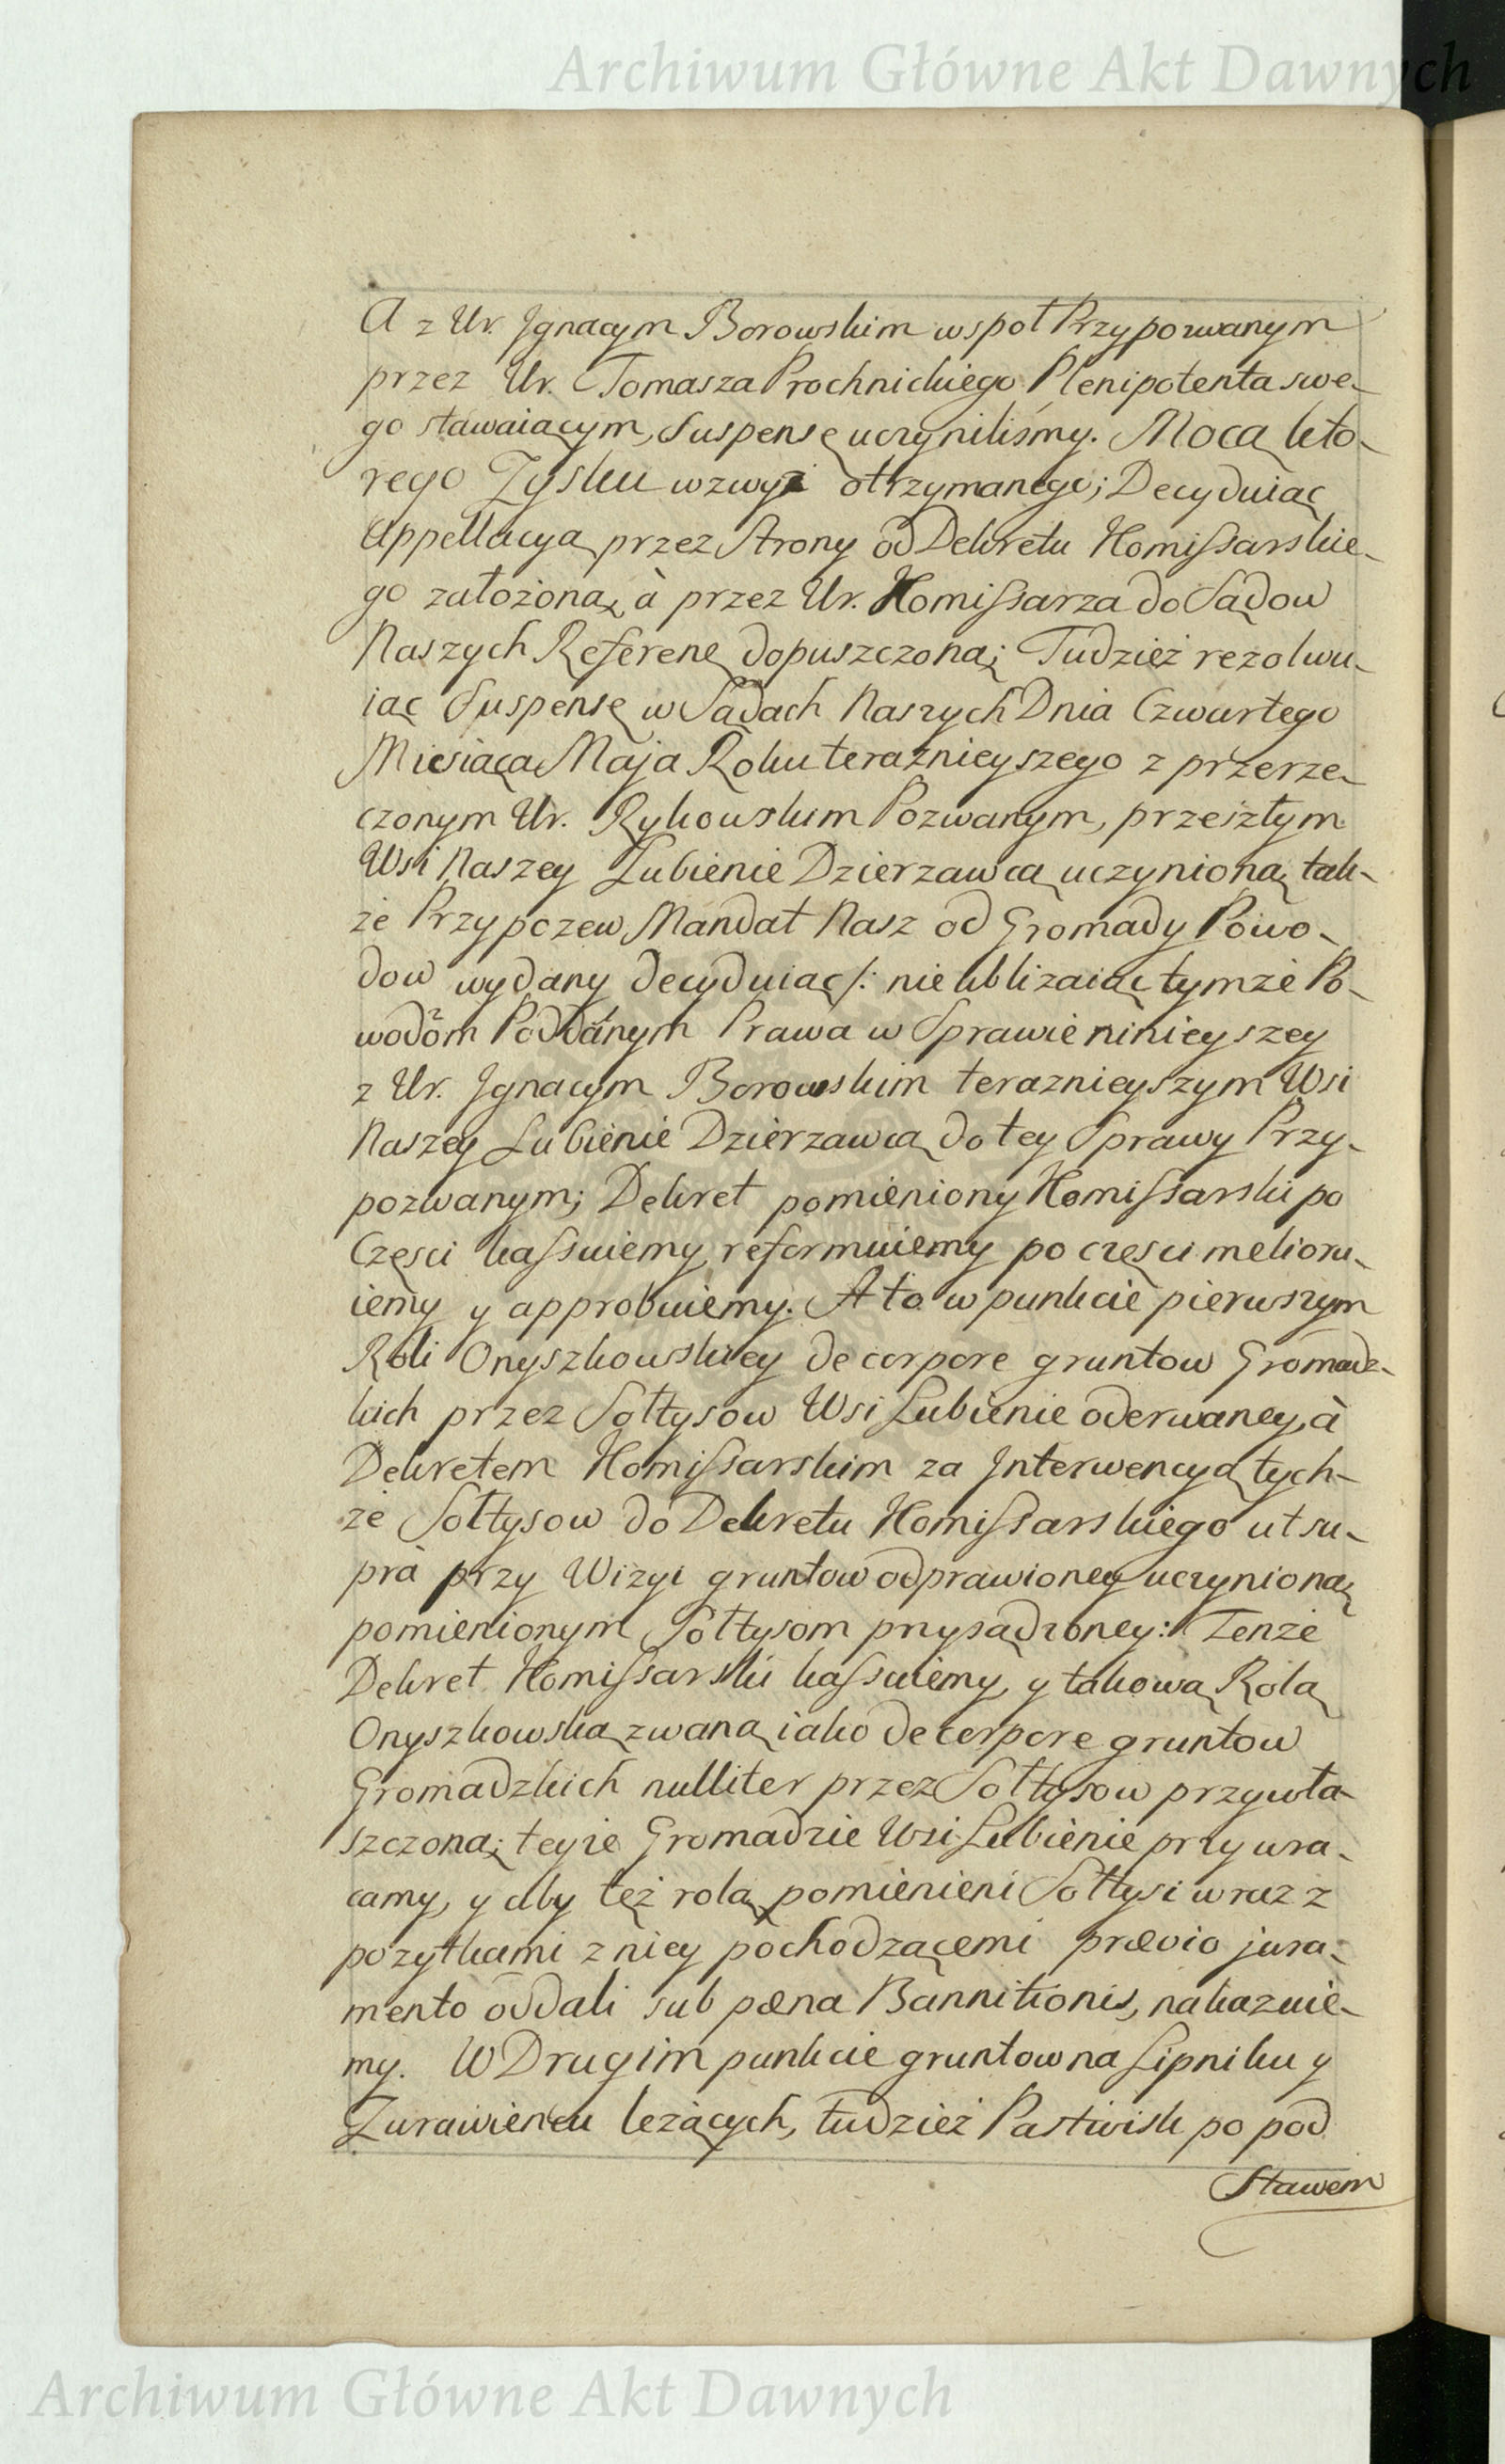 Archiwum Główne Akt Dawnych
A z Ur. Jgnacym Borowskim wspoł Przypozwanym
przez Ur. Tomasza Prochnickiego Plenipotenta swe-
go stawaiącym, Suspensę uczyniliśmy. Mocą kto-
rego Zysku wzwyż otrzymanego; Decyduiąc
Appellacyą przez Strony od Dekretu Kommissarskie-
go założoną, à przez Ur. Kommissarza do Sądow
Naszych Referenc dopuszczoną; Tudzież rezolwu-
iąc Suspensę w Sądach Naszych Dnia Czwartego
Miesiąca Maja Roku teraznieyszego z przerze-
czonym Ur. Rykowskim Pozwanym, przeszłym
Wsi Naszey Lubienie Dzierzawcą uczynioną, tak-
że Przypozew Mandat Nasz od Gromady Powo-
dow wydany decyduiąc/: nie ubliżaiąc tymże Po-
wodom Poddanym Prawa w Sprawie ninieyszey
z Ur. Jgnacym Borowskim teraznieyszym Wsi
Naszey Lubienie Dzierzawcą do tey Sprawy Przy-
pozwanym; Dekret pomieniony Komissarski po
Częsci kassuiemy, reformuiemy po częsci melioru-
iemy y approbuiemy. A to w punkcie pierwszym
Roli Onyszkowskiey de corpore gruntow Gromadz-
kich przez Sołtysow Wsi Lubienie oderwaney, à
Dekretem Komissarskim za Jnterwencyą tych-
że Sołtysow do Dekretu Komissarskiego ut su-
prà przy Wizyi gruntow odprawioney uczynioną
pomienionym Sołtysom przysądzoney: Tenże
Dekret Komissarski kassuiemy, y takową Rolą
Onyszkowską zwaną iako de corpore gruntow
Gromadzkich nulliter przez Sołtysow przywła-
szczoną; teyże Gromadzie Wsi Lubienie przywra-
camy, y aby też rolą pomienieni Sołtysi wraz z
pozytkami z niey pochodzącemi prævio jura-
mento oddali sub pœna Bannitionis, nakazuie-
my. W Drugim punkcie gruntow na Lipniku y
Zurawiencu leżących, tudzież Pastwisk po pod
Stawem
Archiwum Główne Akt Dawnych